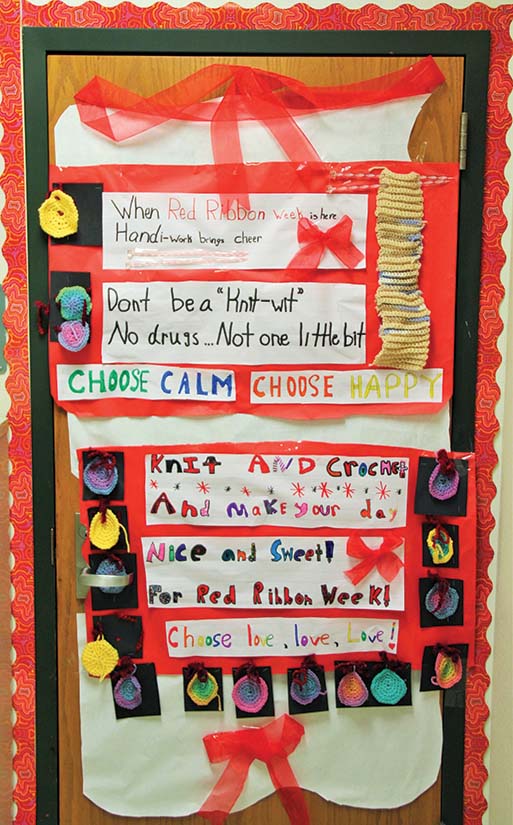 When Red Ribbon Week is here
Handi-work brings cheer
Dont be a "Knit-wit"
No drugs...Not one little bit
CHOOSE CALM CHOOSE HAPPY
Knit AND Crochet
And make your day
Nice and Sweet!
For Red Ribbon Week!
Choose love, love, Love!